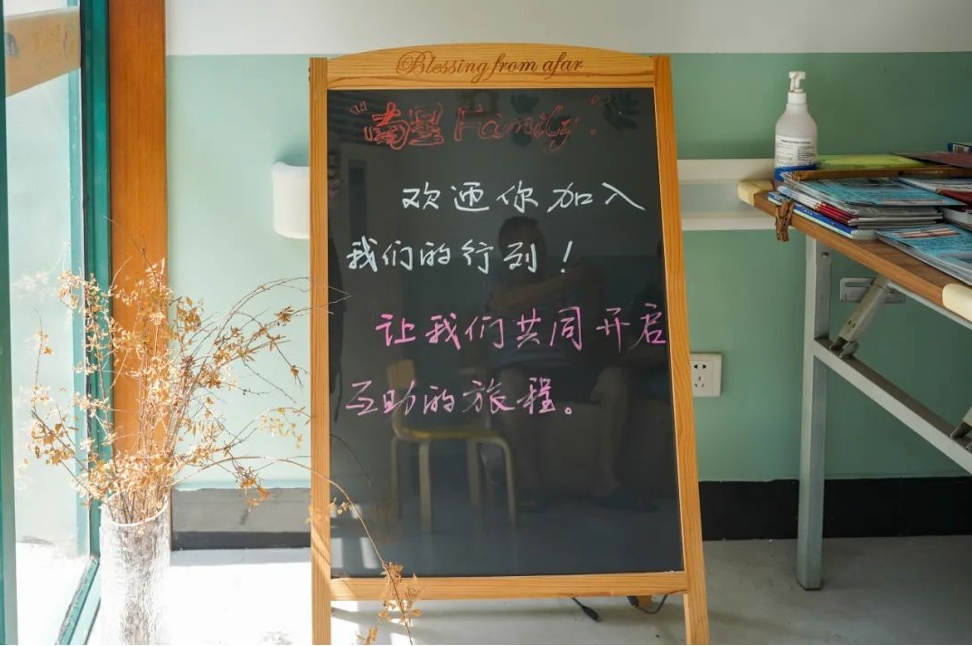 Blessing from afar
"南星 Family"
欢迎你加入
我们的行列！
让我们共同开启
互助的旅程。